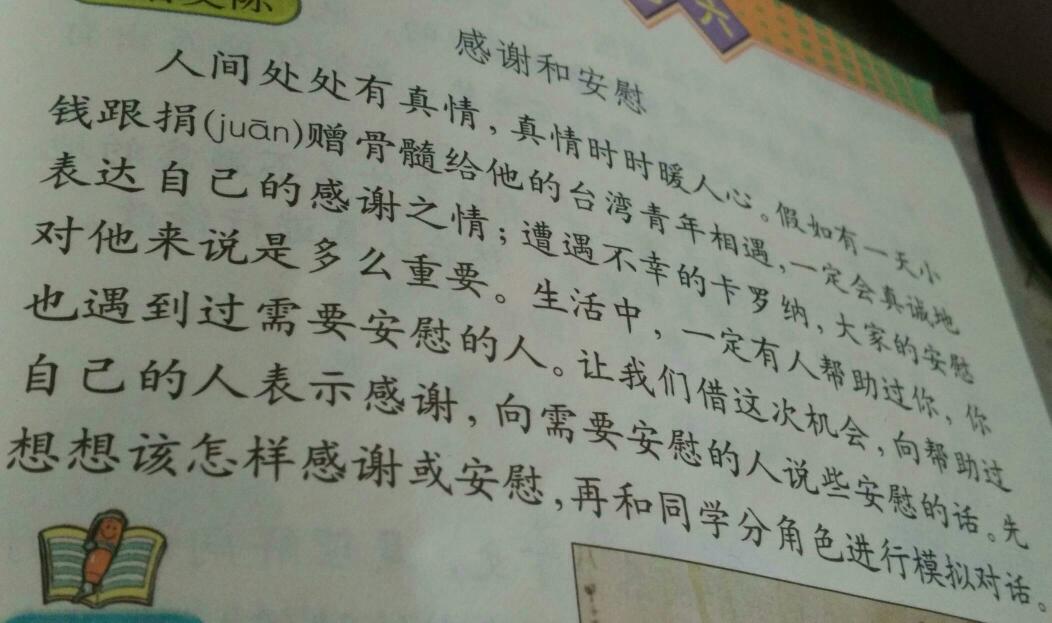 六
感谢和安慰
人间处处有真情，真情时时暖人心。假如有一天小
钱跟捐(juān)赠骨髓给他的台湾青年相遇，一定会真诚地
表达自己的感谢之情；遭遇不幸的卡罗纳，大家的安慰
对他来说是多么重要。生活中，一定有人帮助过你，你
也遇到过需要安慰的人。让我们借这次机会，向帮助过
自己的人表示感谢，向需要安慰的人说些安慰的话。先
想想该怎样感谢或安慰，再和同学分角色进行模拟对话。